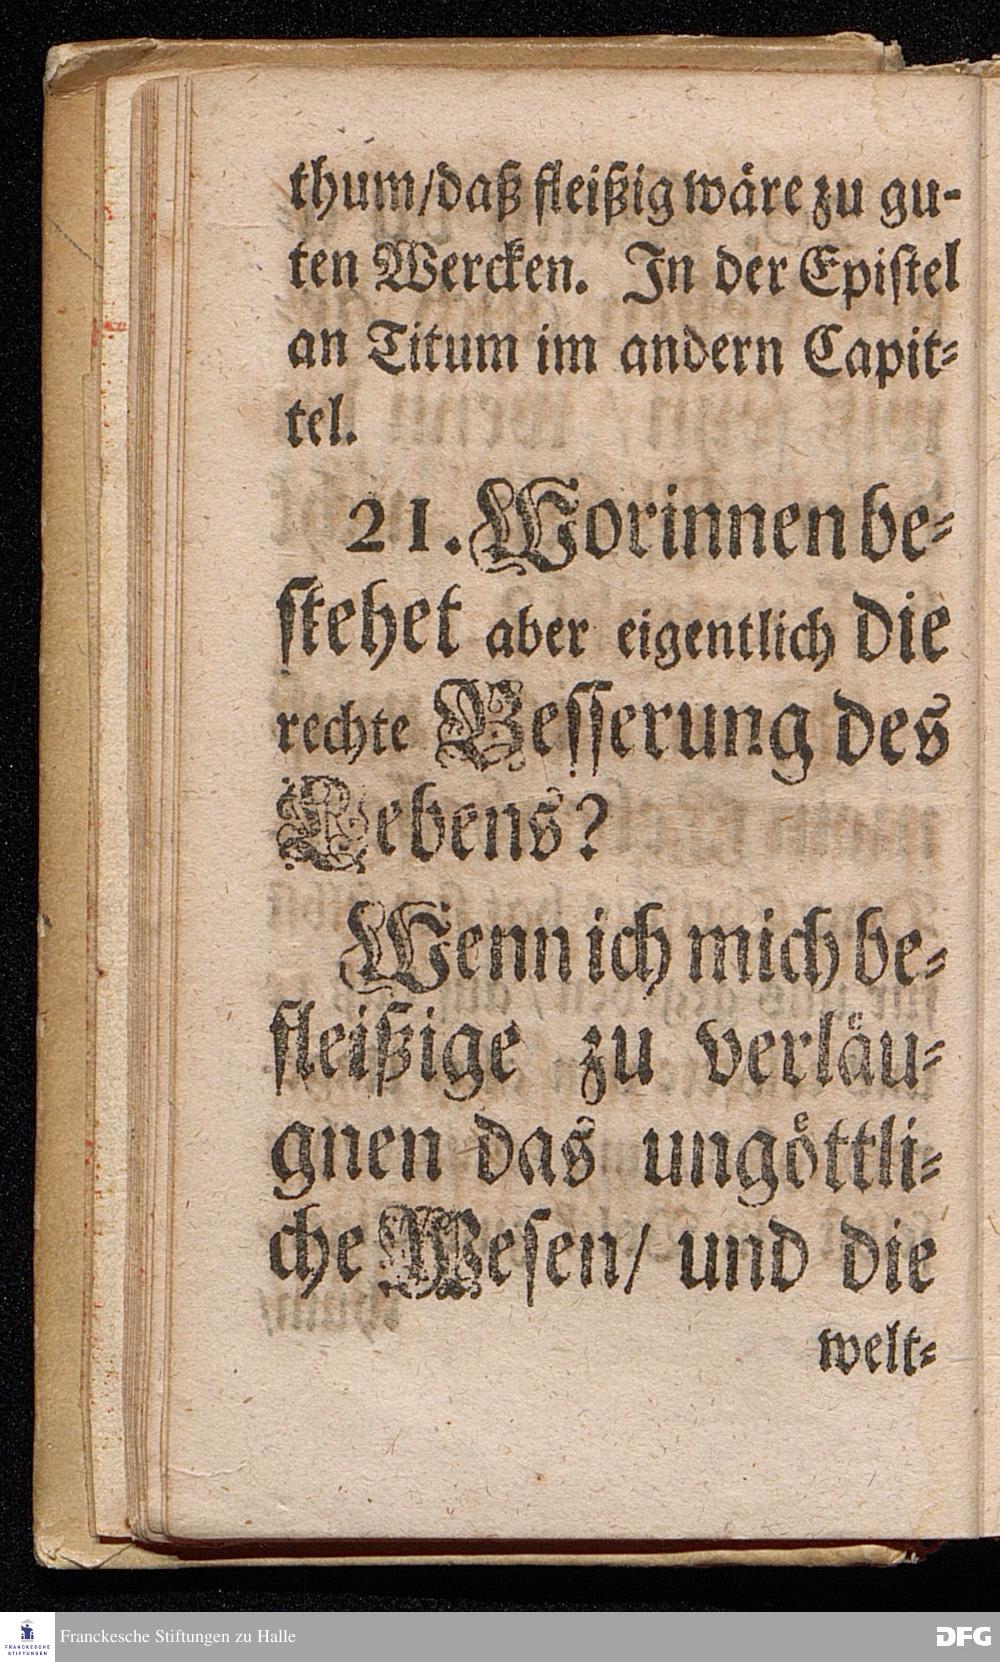 thum/daß fleißig wäre zu gu-
ten Wercken. In der Epistel
an Titum im andern Capit-
tel.
21. Worinnen be-
stehet aber eigentlich die
rechte Besserung des
Lebens?
Wenn ich mich be-
fleißige zu verläu-
gnen das ungöttli-
che Wesen/ und die
welt-
FRANCKESCHE STIFTUNGEN
Franckesche Stiftungen zu Halle
DFG